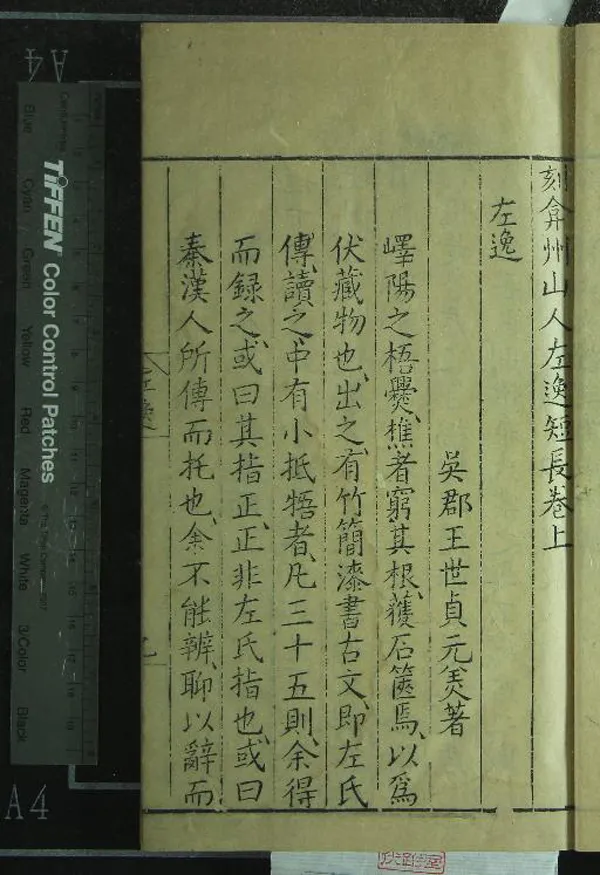 刻弇州山人左逸短長卷上
左逸
吳郡王世貞元美著
嶧陽之梧爨樵者窮其根獲石篋焉以爲
伏藏物也出之有竹簡漆書古文即左氏
傳讀之中有小抵牾者凡三十五則余得
而録之或曰其指正正非左氏指也或曰
秦漢人所傳而托也余不能辨聊以辭而
TIFFEN Color Control Patches
Blue Cyan Green Yellow Red Magenta White 3/Color Black
A4
A4